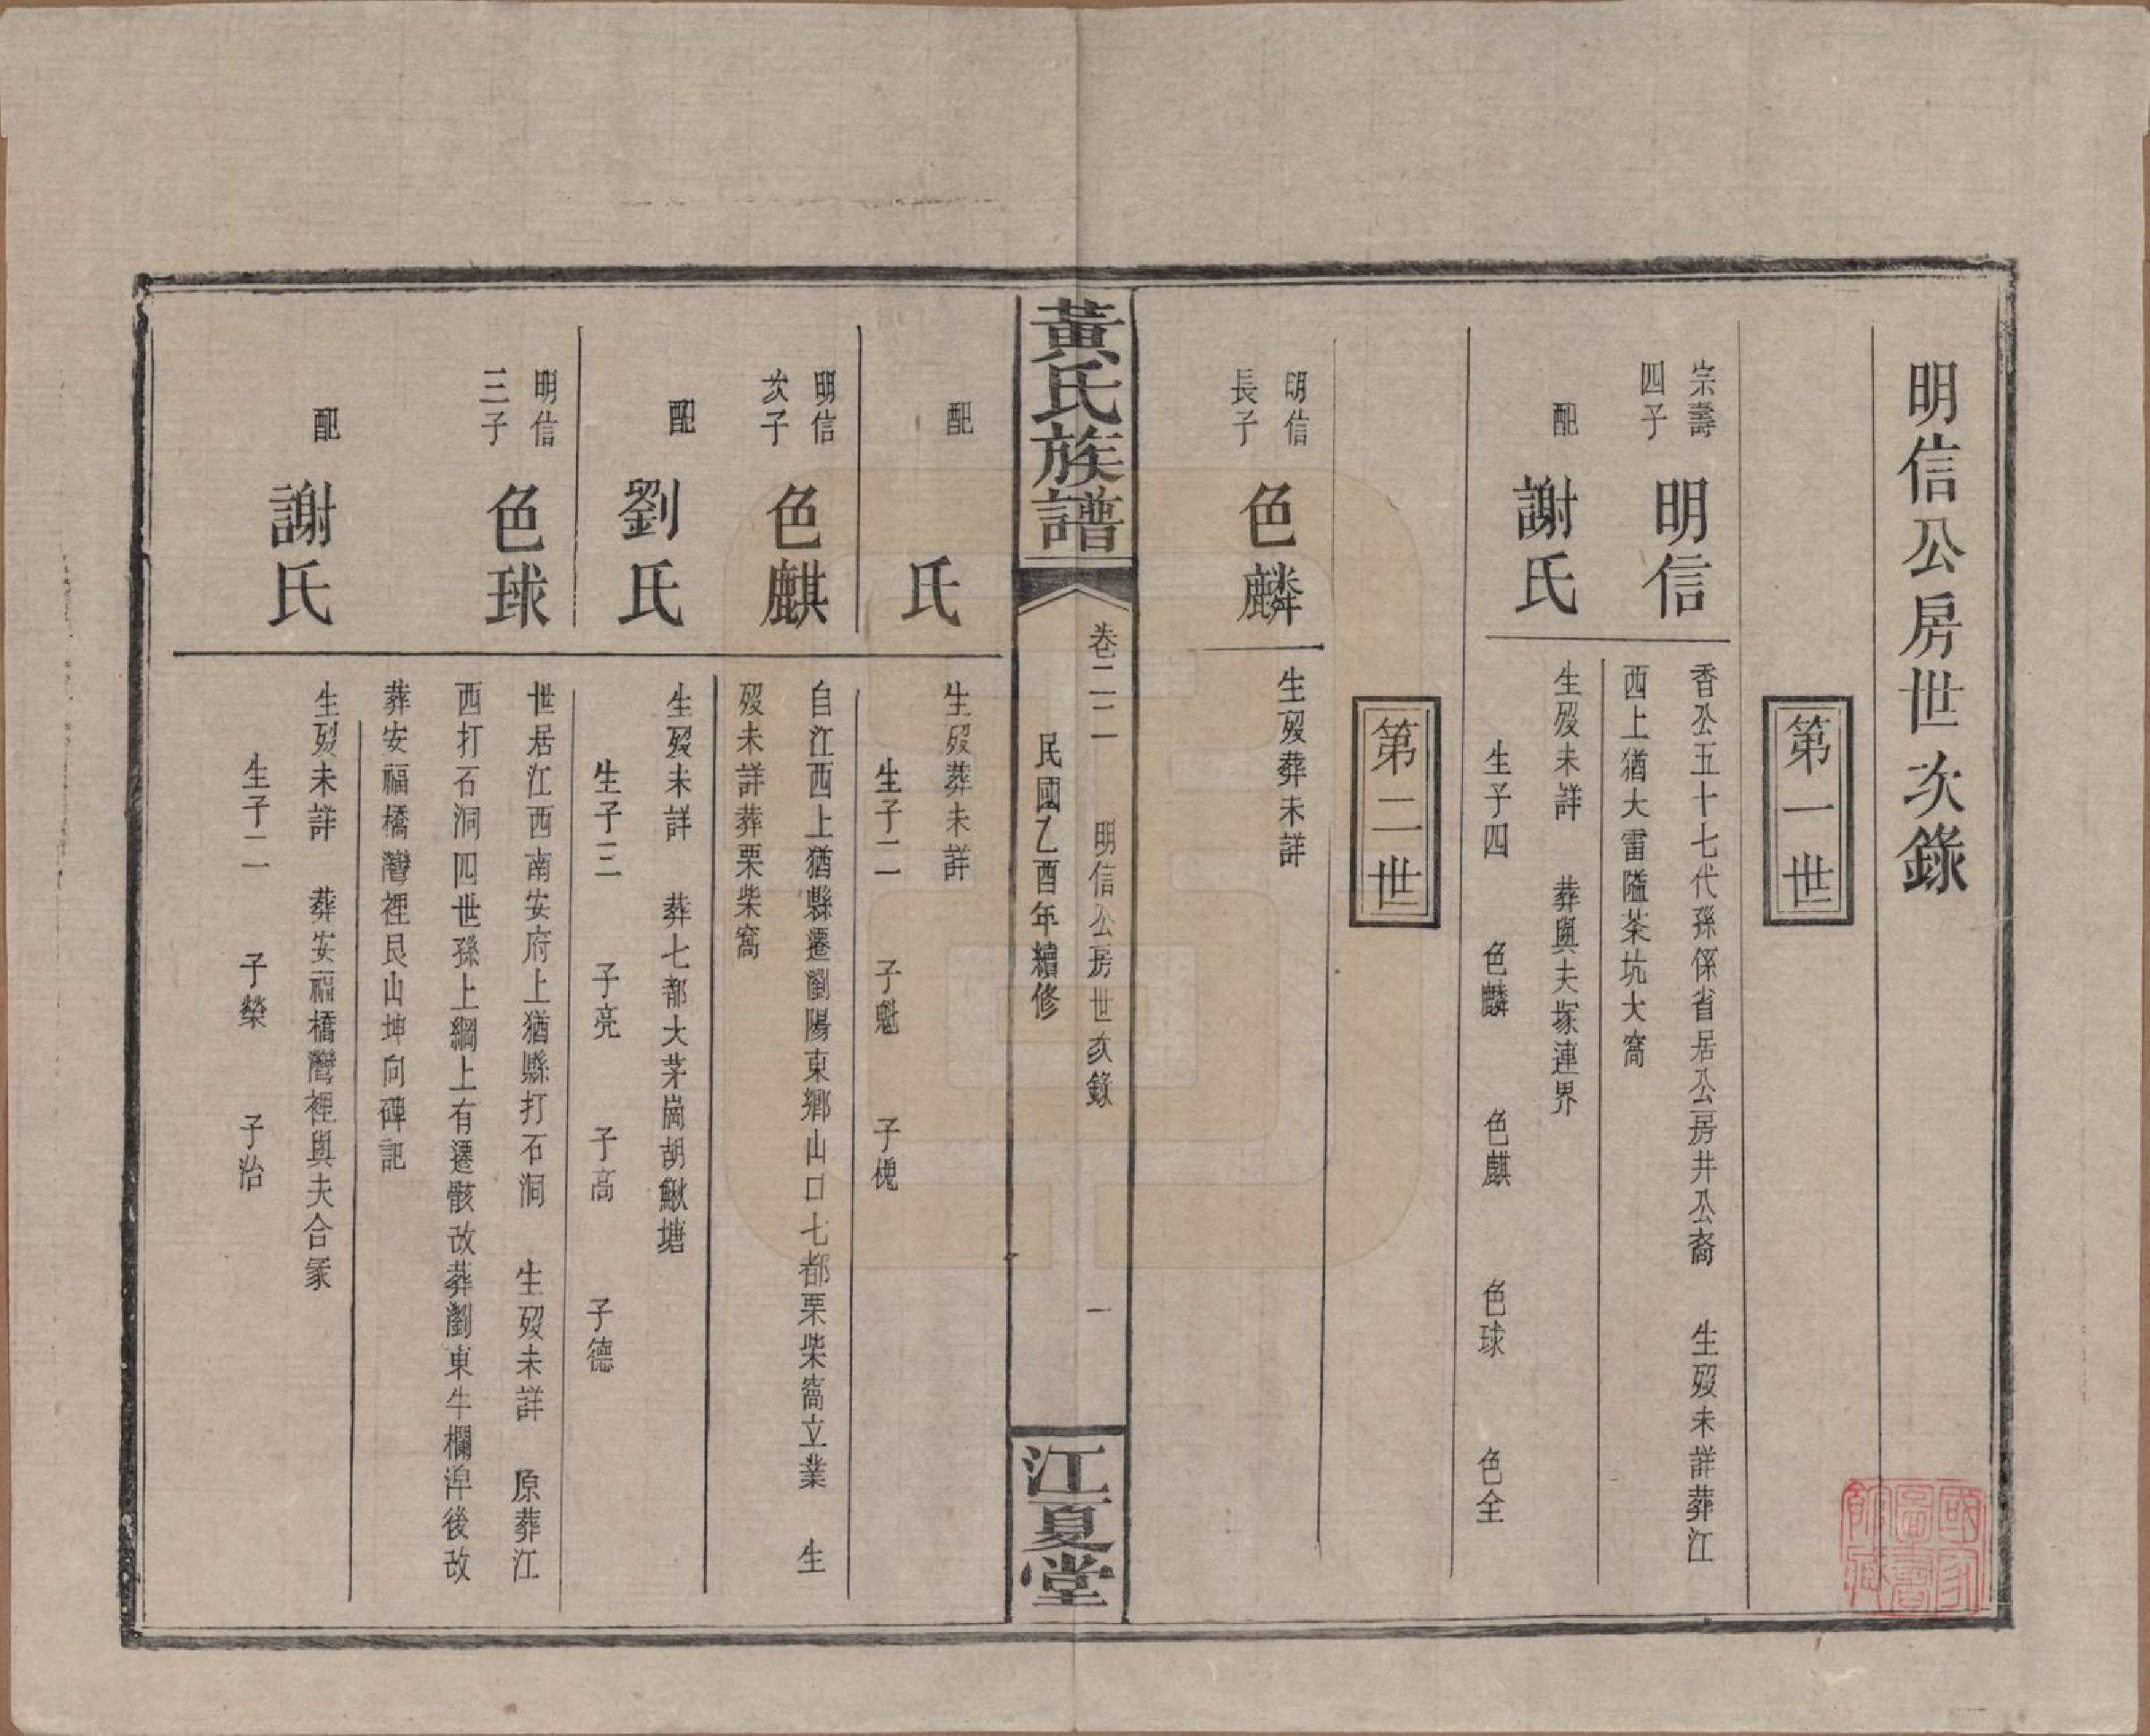 明信公房世次錄
第一世
宗壽
四子
明信
香公五十七代孫係省居公房井公裔 生歿未詳葬江
西上猶大雷隘茶坑大窩
配
謝氏
生歿未詳 葬與夫塚連界
生子四 色麟 色麒 色球 色全
第二世
明信
長子
色麟
生歿葬未詳
黃氏族譜
卷二二 明信公房世次錄 一
民國乙酉年續修
江夏堂
配
氏
生歿葬未詳
生子二 子魁 子槐
明信
次子
色麒
自江西上猶縣遷瀏陽東鄉山口七都栗柴窩立業 生
歿未詳葬栗柴窩
配
劉氏
生歿未詳 葬七都大茅崗胡鰍塘
生子三 子亮 子高 子德
明信
三子
色球
世居江西南安府上猶縣打石洞 生歿未詳 原葬江
西打石洞四世孫上綱上有遷骸改葬瀏東牛欄漳後改
葬安福橋灣裡艮山坤向碑記
配
謝氏
生歿未詳 葬安福橋灣裡與夫合冢
生子二 子榮 子治
國家
圖書
館藏